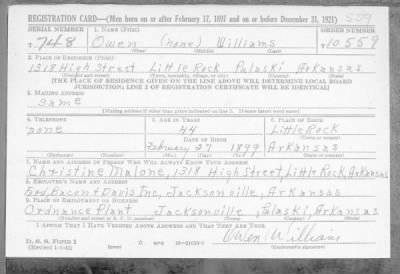 REGISTRATION CARD—(Men born on or after February 17, 1897 and on or before December 31, 1921)
SERIAL NUMBER 1. NAME (Print) ORDER NUMBER
748 Owen (none) Williams 10559
(First) (Middle) (Last)
2. PLACE OF RESIDENCE (Print)
1318 High Street Little Rock Pulaski Arkansas
(Number and street) (Town, township, village, or city) (County) (State)
[THE PLACE OF RESIDENCE GIVEN ON THE LINE ABOVE WILL DETERMINE LOCAL BOARD
JURISDICTION; LINE 2 OF REGISTRATION CERTIFICATE WILL BE IDENTICAL]
3. MAILING ADDRESS
Same
[Mailing address if other than place indicated on line 2. If same insert word same]
4. TELEPHONE 5. AGE IN YEARS 6. PLACE OF BIRTH
none 44 Little Rock
DATE OF BIRTH (Town or county)
February 27 1899 Arkansas
(Exchange) (Number) (Mo.) (Day) (Yr.) (State or country)
7. NAME AND ADDRESS OF PERSON WHO WILL ALWAYS KNOW YOUR ADDRESS
Christine Malone, 1318 High Street, Little Rock, Arkansas
8. EMPLOYER'S NAME AND ADDRESS
Ford, Bacon & Davis Inc, Jacksonville, Arkansas
9. PLACE OF EMPLOYMENT OR BUSINESS
Ordnance Plant Jacksonville, Pulaski, Arkansas
(Number and street or R. F. D. number) (Town) (County) (State)
I AFFIRM THAT I HAVE VERIFIED ABOVE ANSWERS AND THAT THEY ARE TRUE.
D. S. S. Form 1
Owen Williams